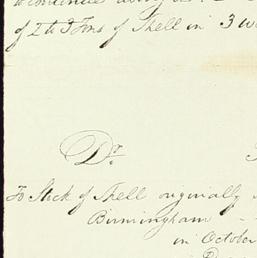 to continue
of 2 to 3 Tons of Shell in 3 w
Dr.
To Stock of Shell originally
Birmingham -
in October